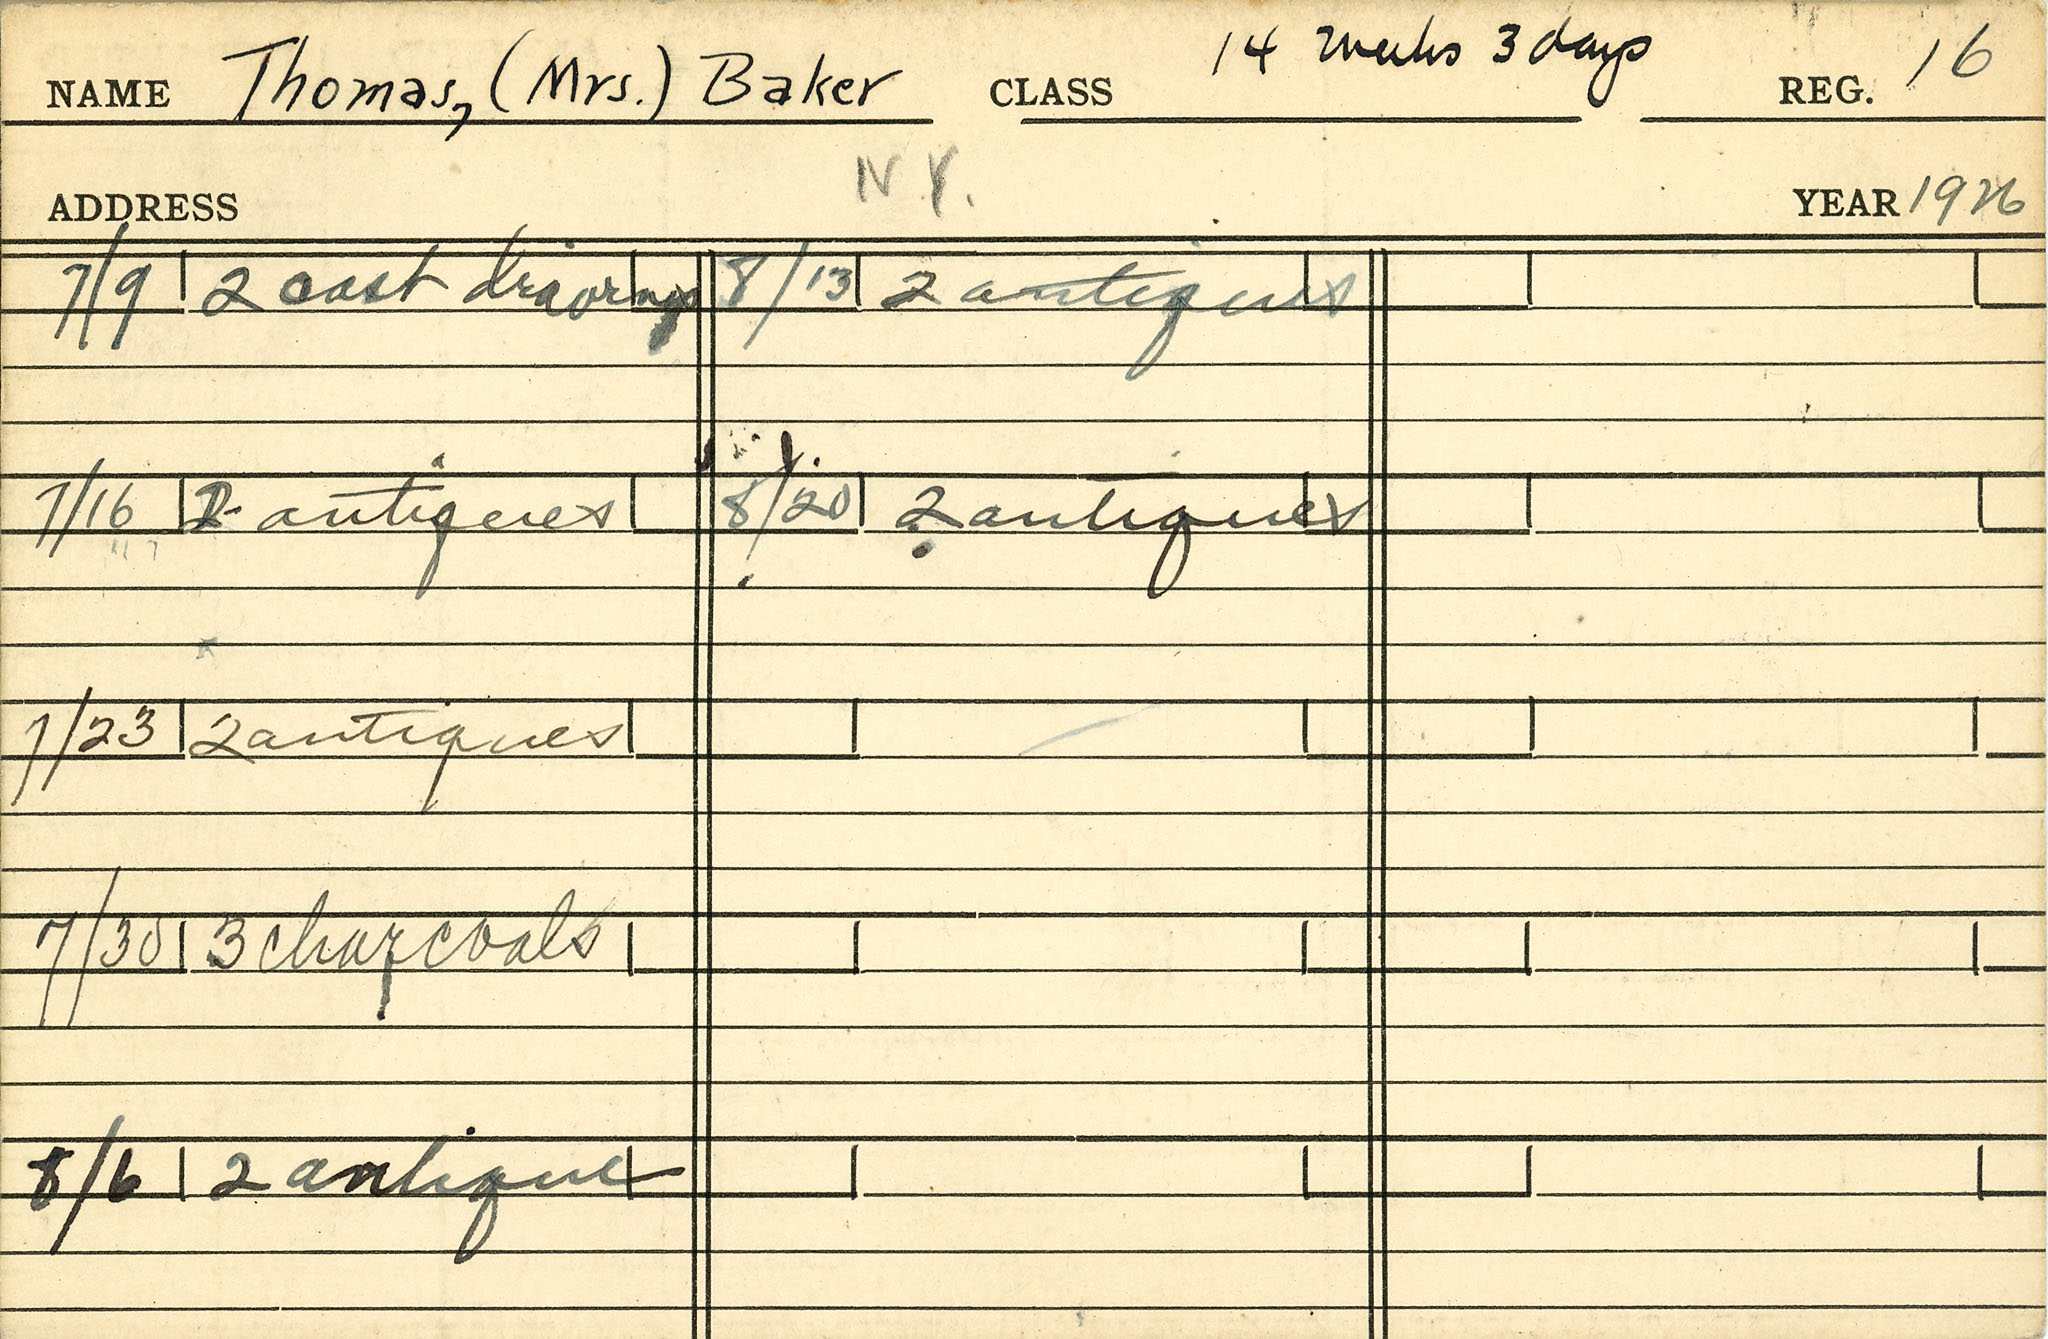 14 weeks 3 days
NAME Thomas, (Mrs.) Baker CLASS REG. 16
N.Y.
ADDRESS YEAR 1926
7/9 2 cast drawings 8/13 2 antiques
7/16 2 antiques 8/20 2 antiques
7/23 2 antiques
7/30 3 charcoals
8/6 2 antique